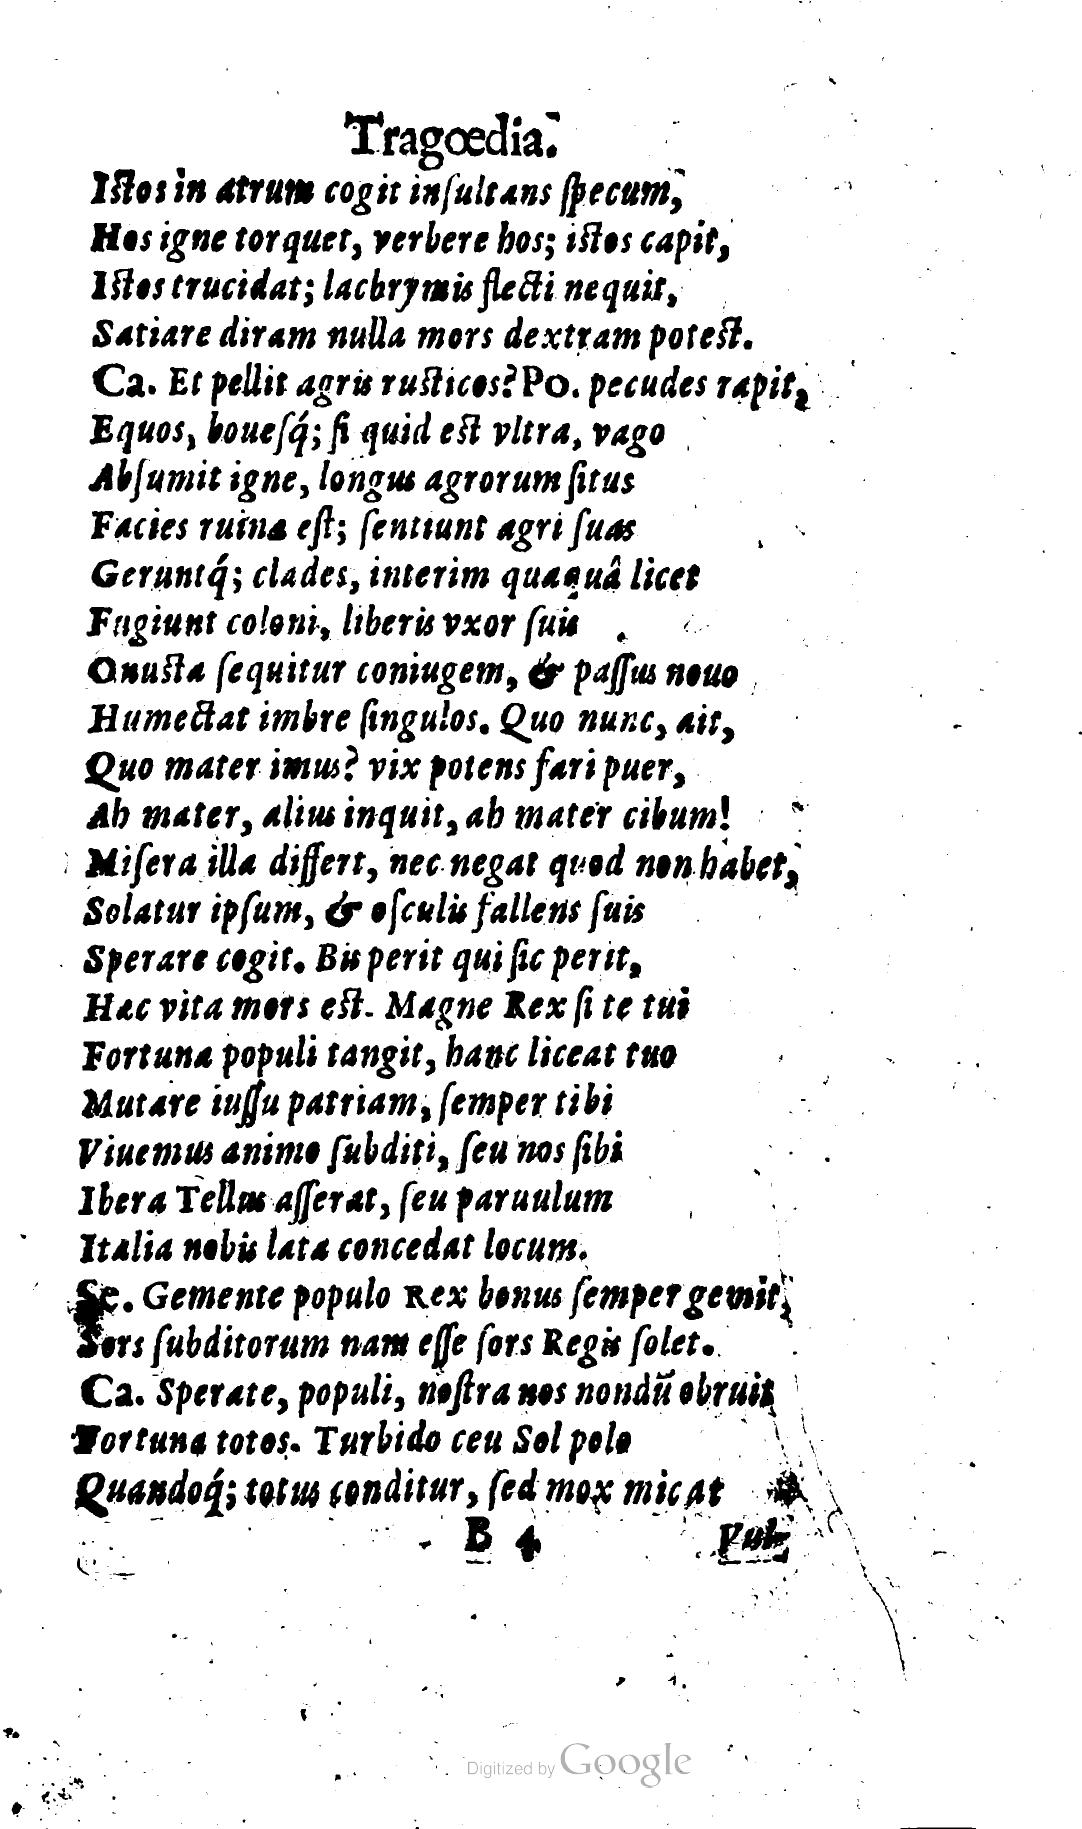 Tragœdia.
Istos in atrum cogit inſultans ſpecum,
Hos igne torquet, verbere hos; istos capit,
Istos trucidat; lachrymis flecti nequit,
Satiare diram nulla mors dextram potest.
Ca. Et pellit agris rusticos? Po. pecudes rapit,
Equos, boueſq́; ſi quid est vltra, vago
Abſumit igne, longus agrorum ſitus
Facies ruina eſt; ſentiunt agri ſuas
Geruntq́; clades, interim quaquâ licet
Fugiunt coloni, liberis vxor ſuis
Onusta ſequitur coniugem, & paſſus nouo
Humectat imbre ſingulos. Quo nunc, ait,
Quo mater imus? vix potens fari puer,
Ah mater, alius inquit, ah mater cibum!
Miſera illa differt, nec negat quod non habet,
Solatur ipſum, & oſculis fallens ſuis
Sperare cogit. Bis perit qui ſic perit,
Hac vita mors est. Magne Rex ſi te tui
Fortuna populi tangit, hanc liceat tuo
Mutare iuſſu patriam, ſemper tibi
Viuemus animo ſubditi, ſeu nos ſibi
Ibera Tellus aſſerat, ſeu paruulum
Italia nobis lata concedat locum.
Se. Gemente populo Rex bonus ſemper gemit,
Sors ſubditorum nam eſſe ſors Regis ſolet.
Ca. Sperate, populi, noſtra nos nondū obruit
Fortuna totos. Turbido ceu Sol polo
Quandoq́; totus conditur, ſed mox micat
B 4 Vul-
Digitized by Google